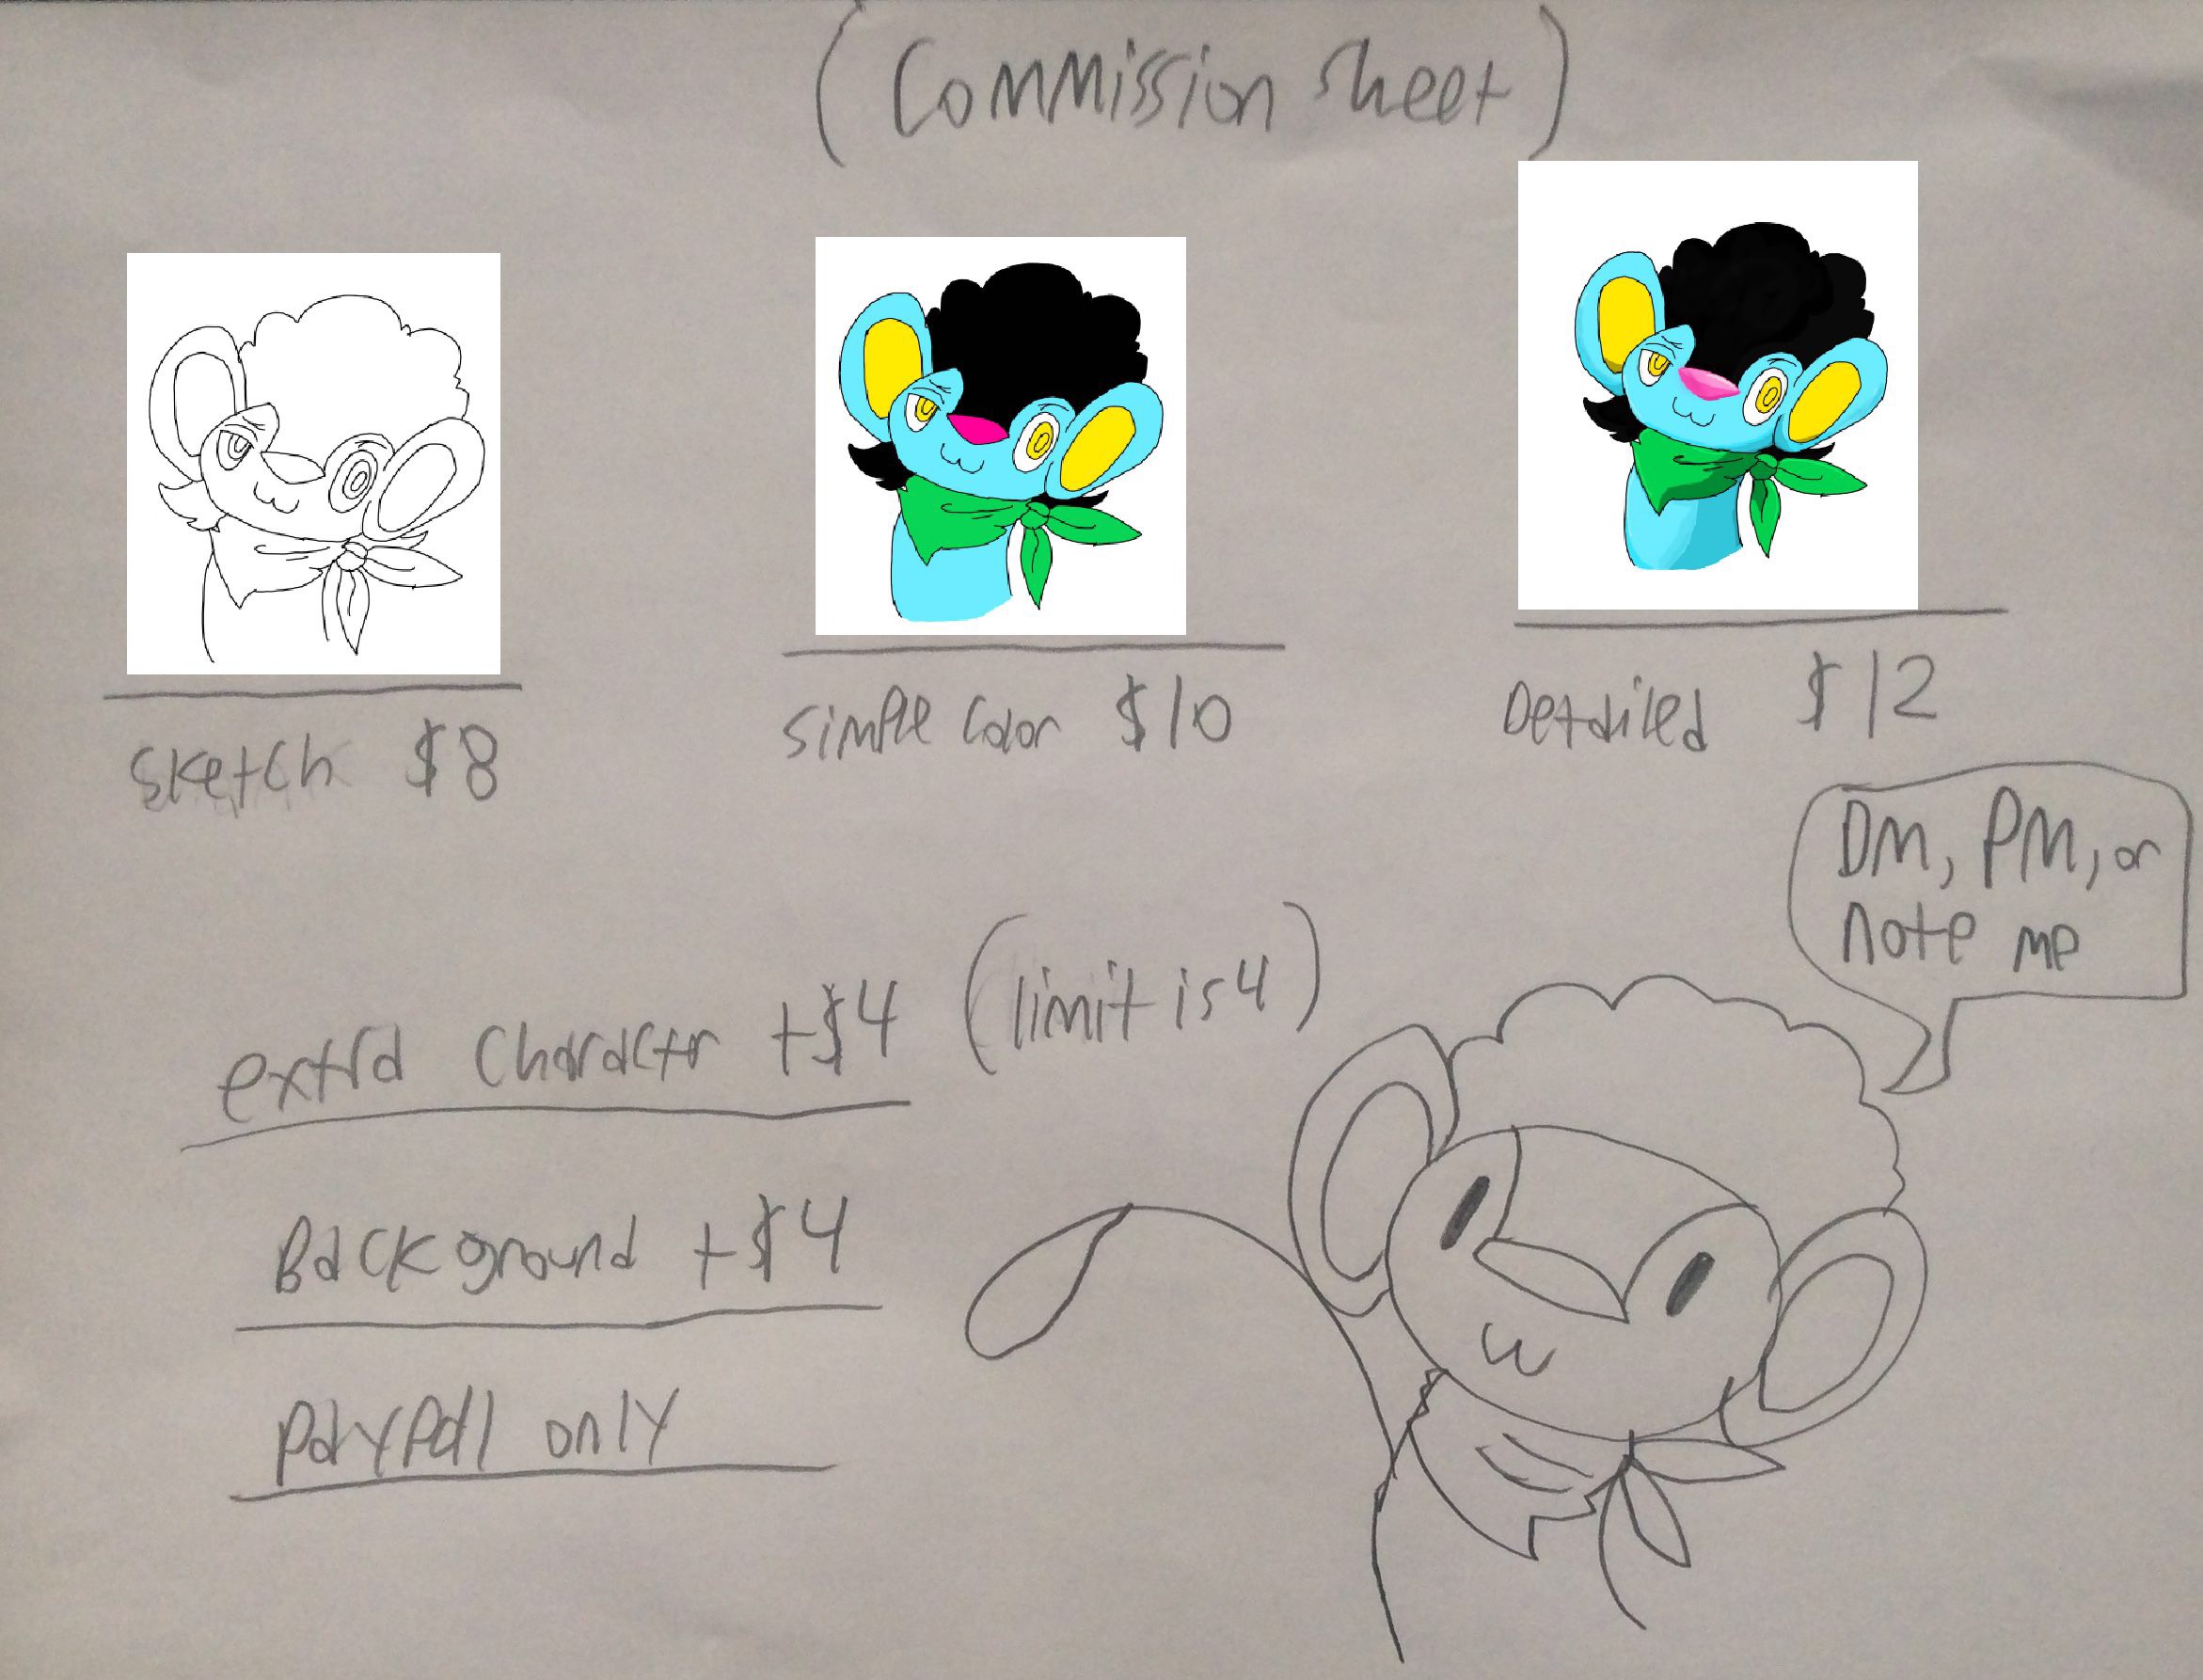 (Commission sheet)
Sketch $8
Simple Color $10
Detailed $12
DM, PM, or
note me
extra Character +$4 (limit is 4)
Background +$4
PayPall only